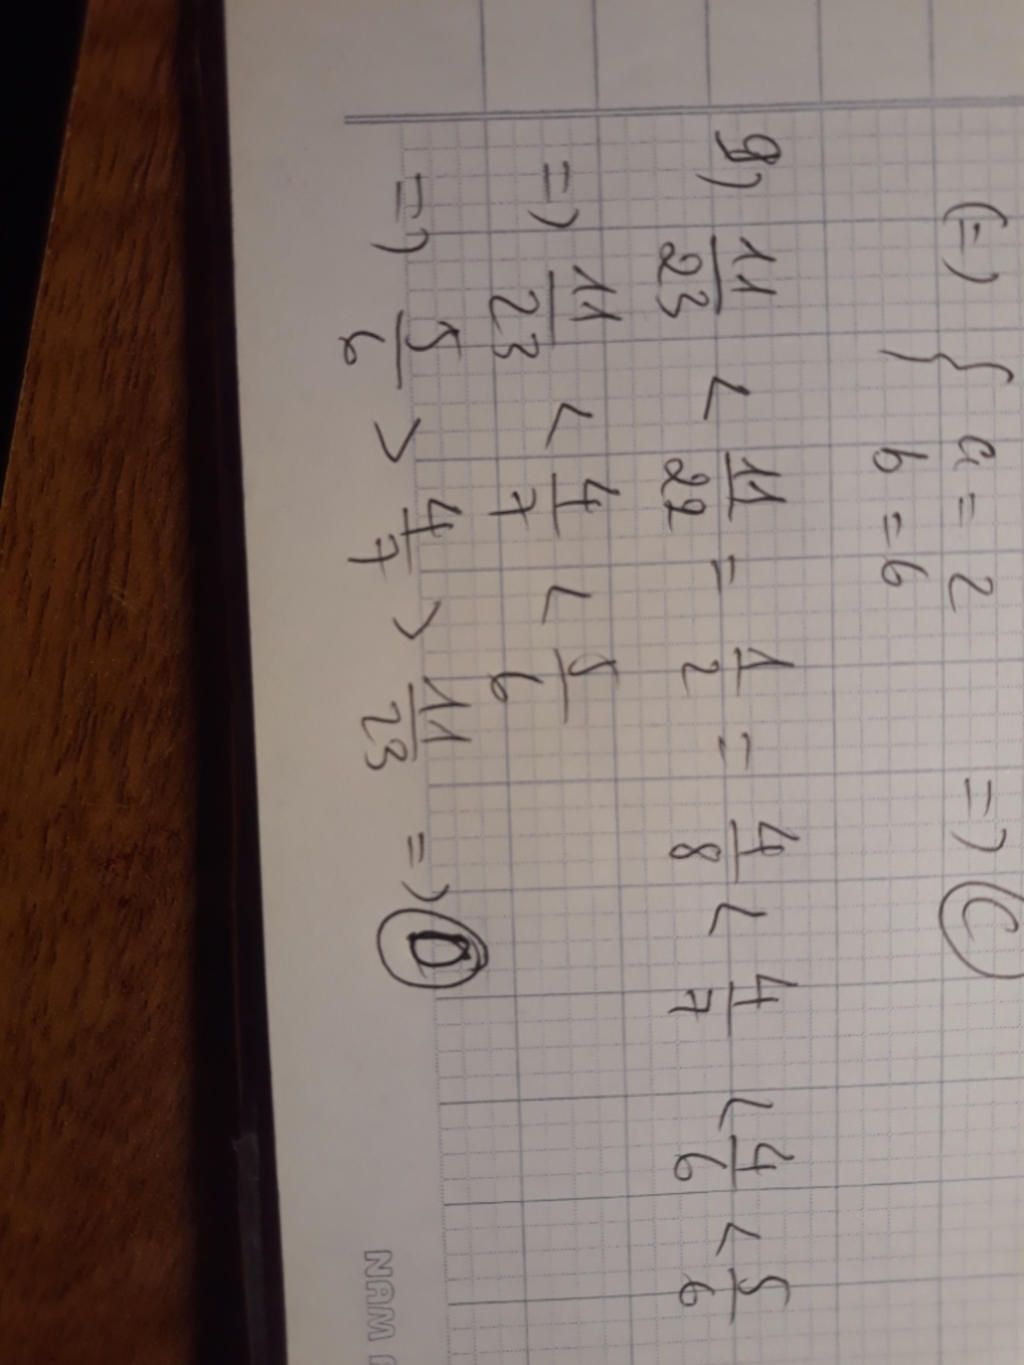 (=) { a = 2
b = 6 => C
9) 11/23 < 11/22 = 1/2 = 4/8 < 4/7 < 4/6 < 5/6
=> 11/23 < 4/7 < 5/6
=> 5/6 > 4/7 > 11/23 => D
NAM